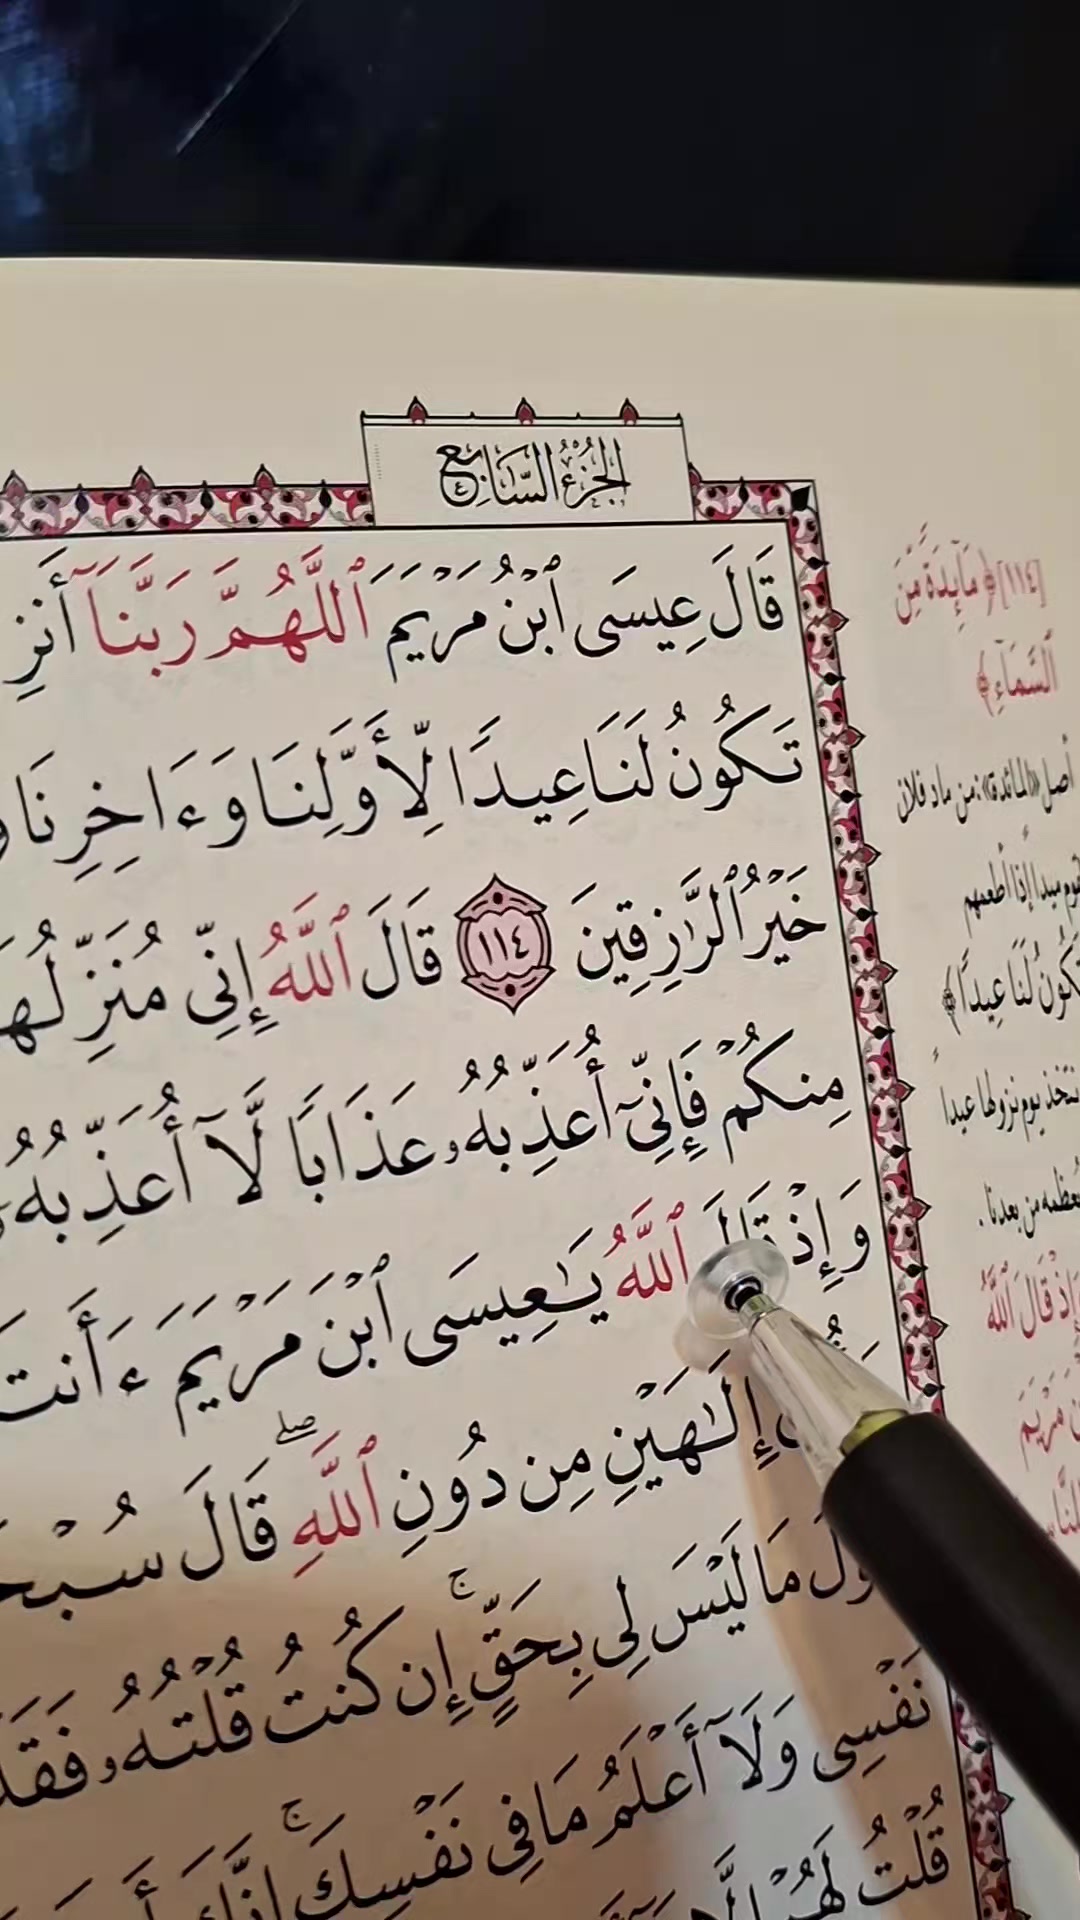 الجُزْءُ السَّابِعُ
قَالَ عِيسَى ٱبْنُ مَرْيَمَ ٱللَّهُمَّ رَبَّنَآ أَنزِ
تَكُونُ لَنَا عِيدًا لِّأَوَّلِنَا وَءَاخِرِنَا وَ
خَيْرُ ٱلرَّٰزِقِينَ ١١٤ قَالَ ٱللَّهُ إِنِّى مُنَزِّلُهَ
مِنكُمْ فَإِنِّىٓ أُعَذِّبُهُۥ عَذَابًا لَّآ أُعَذِّبُهُۥ
وَإِذْ قَالَ ٱللَّهُ يَٰعِيسَى ٱبْنَ مَرْيَمَ ءَأَنتَ
إِلَٰهَيْنِ مِن دُونِ ٱللَّهِۖ قَالَ سُبْحَ
ولَ مَا لَيْسَ لِى بِحَقٍّۚ إِن كُنتُ قُلْتُهُۥ فَقَدْ
نَفْسِى وَلَآ أَعْلَمُ مَا فِى نَفْسِكَۚ إِنَّكَ أَ
قُلْتُ لَهُمْ إِلَّا
[١١٤] ﴿مَآئِدَةً مِّنَ
ٱلسَّمَآءِ﴾
أصل «المائدة»: من ماد فلان
القوم ميدا إذا أطعمهم
تَكُونُ لَنَا عِيدًا﴾
نتخذ يوم نزولها عيداً
نعظمه من بعدنا .
وَإِذْ قَالَ ٱللَّهُ
نَ مَرْيَمَ
لِلنَّاسِ